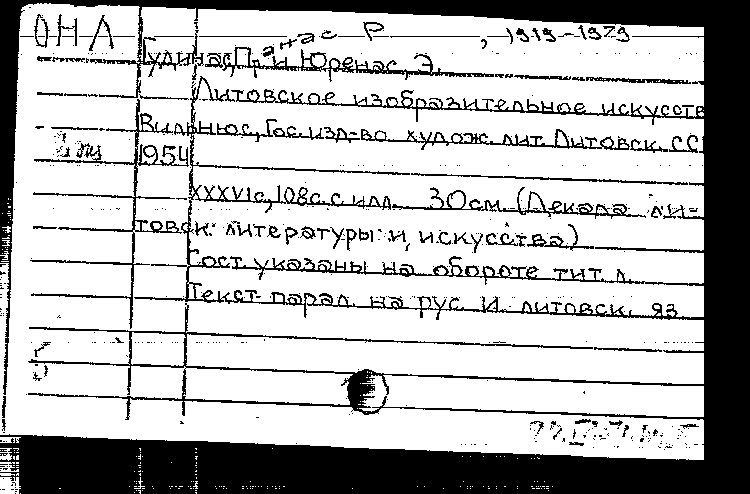 ОНЛ
анас Р , 1919-1979
Гудинас, П. и Юренас, Э.
Литовское изобразительное искусств
Вильнюс, Гос. изд-во худож. лит. Литовск. ССР
2 экз 1954.
XXXVIс, 108с. с илл. 30см. (Декада ли-
товск. литературы и искусства)
Сост. указаны на обороте тит. л.
Текст парал. на рус. и литовск. яз.
Б